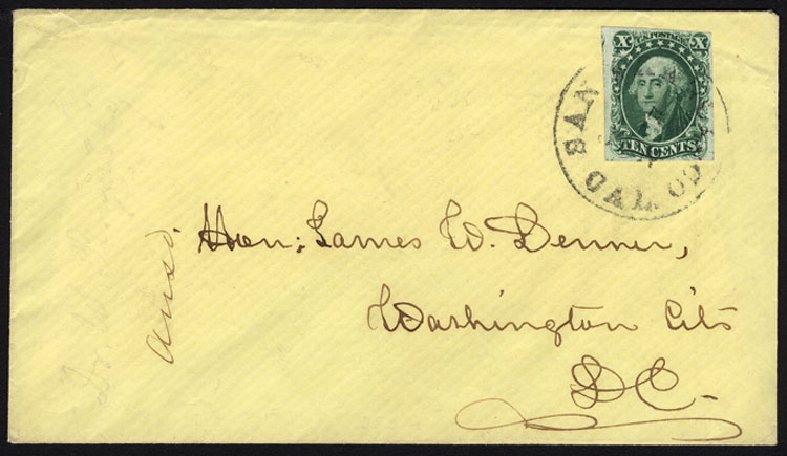 X U.S. POSTAGE X
TEN CENTS
SAN
CAL.
Hon: James W. Denver,
Washington City
D.C.
ansd.